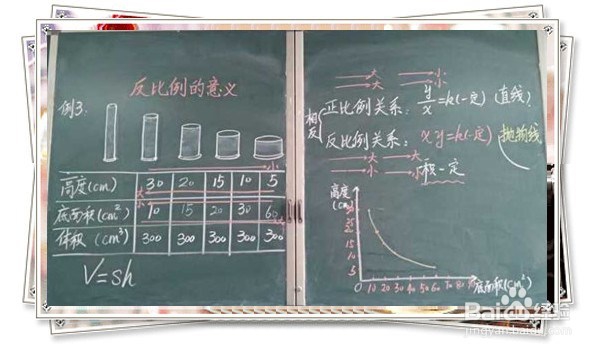 反比例的意义
例3.
高度(cm) 30 20 15 10 5
底面积(cm²) 10 15 20 30 60
体积(cm³) 300 300 300 300 300
V=sh
大 小
大 小
大 小
相反
正比例关系: y/x=k(一定) (直线)
反比例关系: xy=k(一定) 抛物线
大 小
积一定
高度(cm)
15
10
5
0 10 20 30 40 50 60 70 80 底面积(cm²)
Baidu经验
jingyan.baidu.com